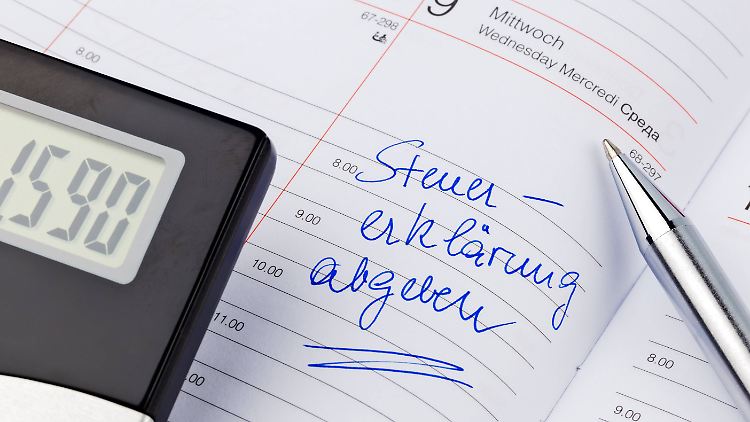 67-298
8.00
9
Mittwoch
Wednesday Mercredi Среда
68-297
8.00
Steuer-
9.00
erklärung
10.00
abgeben
11.00
.00
1590
8.00
9.00